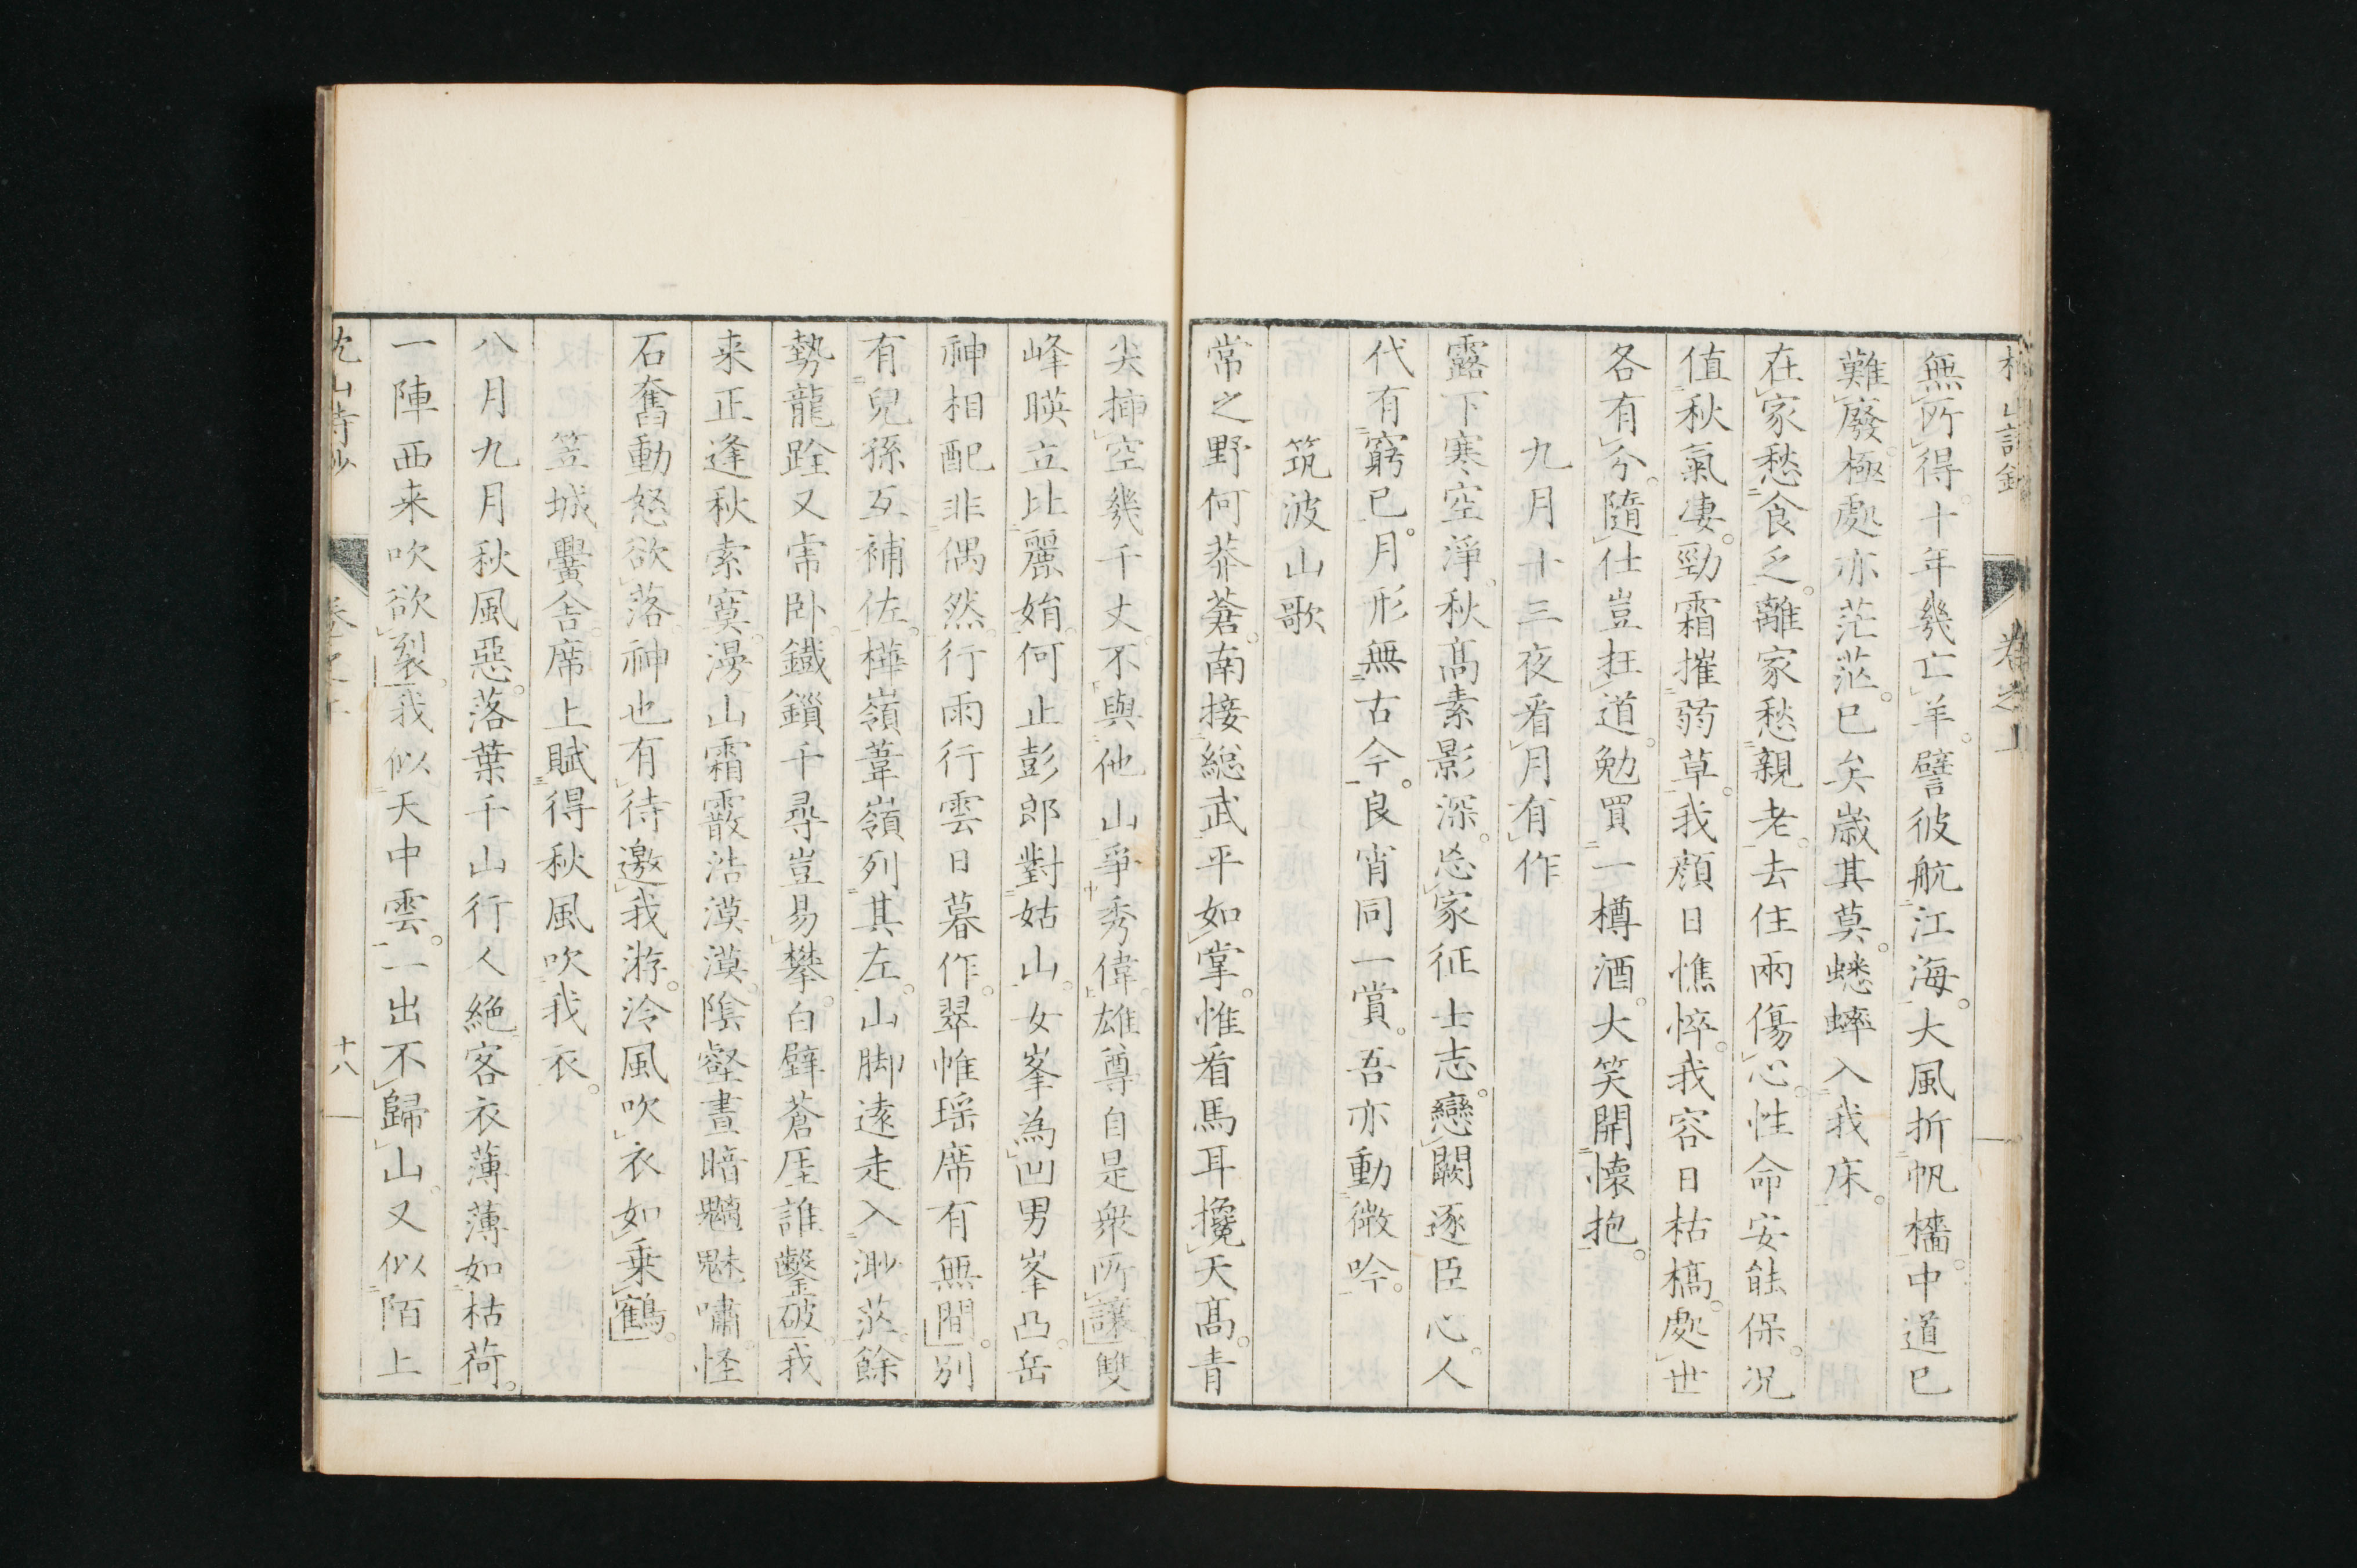 無所得。十年幾亡羊。譬彼航江海。大風折帆檣。中道已
難廢。極處亦茫茫。已矣歳其莫。蟋蟀入我床。
在家愁食乏。離家愁親老。去住兩傷心。性命安能保。况
值秋氣凄。勁霜摧弱草。我顔日憔悴。我容日枯槁。處世
各有分。隨仕豈枉道。勉買一樽酒。大笑開懷抱。
九月十三夜看月有作
露下寒空淨。秋髙素影深。忘家征士志。戀闕逐臣心。人
代有窮已。月形無古今。良宵同一賞。吾亦動微吟。
筑波山歌
常之野何莽蒼。南接総武平如掌。惟看馬耳攙天髙。青
尖揷空幾千丈。不與他山爭秀偉。雄尊自是衆所讓。雙
峰暎立比麗娟。何止彭郎對姑山。女峯為凹男峯凸。岳
神相配非偶然。行雨行雲日暮作。翠帷瑶席有無間。別
有兒孫互補佐。樺嶺葦嶺列其左。山脚逺走入渺茫。餘
勢龍跧又乕卧。鐵鎖千尋豈易攀。白壁蒼厓誰鑿破。我
来正逢秋索寞。漫山霜霰浩漠漠。陰壑晝暗魑魅嘯。怪
石奮動怒欲落。神也有待邀我游。泠風吹衣如乗鶴。
笠城黌舍席上賦得秋風吹我衣。
八月九月秋風惡。落葉千山行人絶。客衣薄薄如枯荷。
一陣西来吹欲裂。我似天中雲。一出不歸山。又似陌上
十八